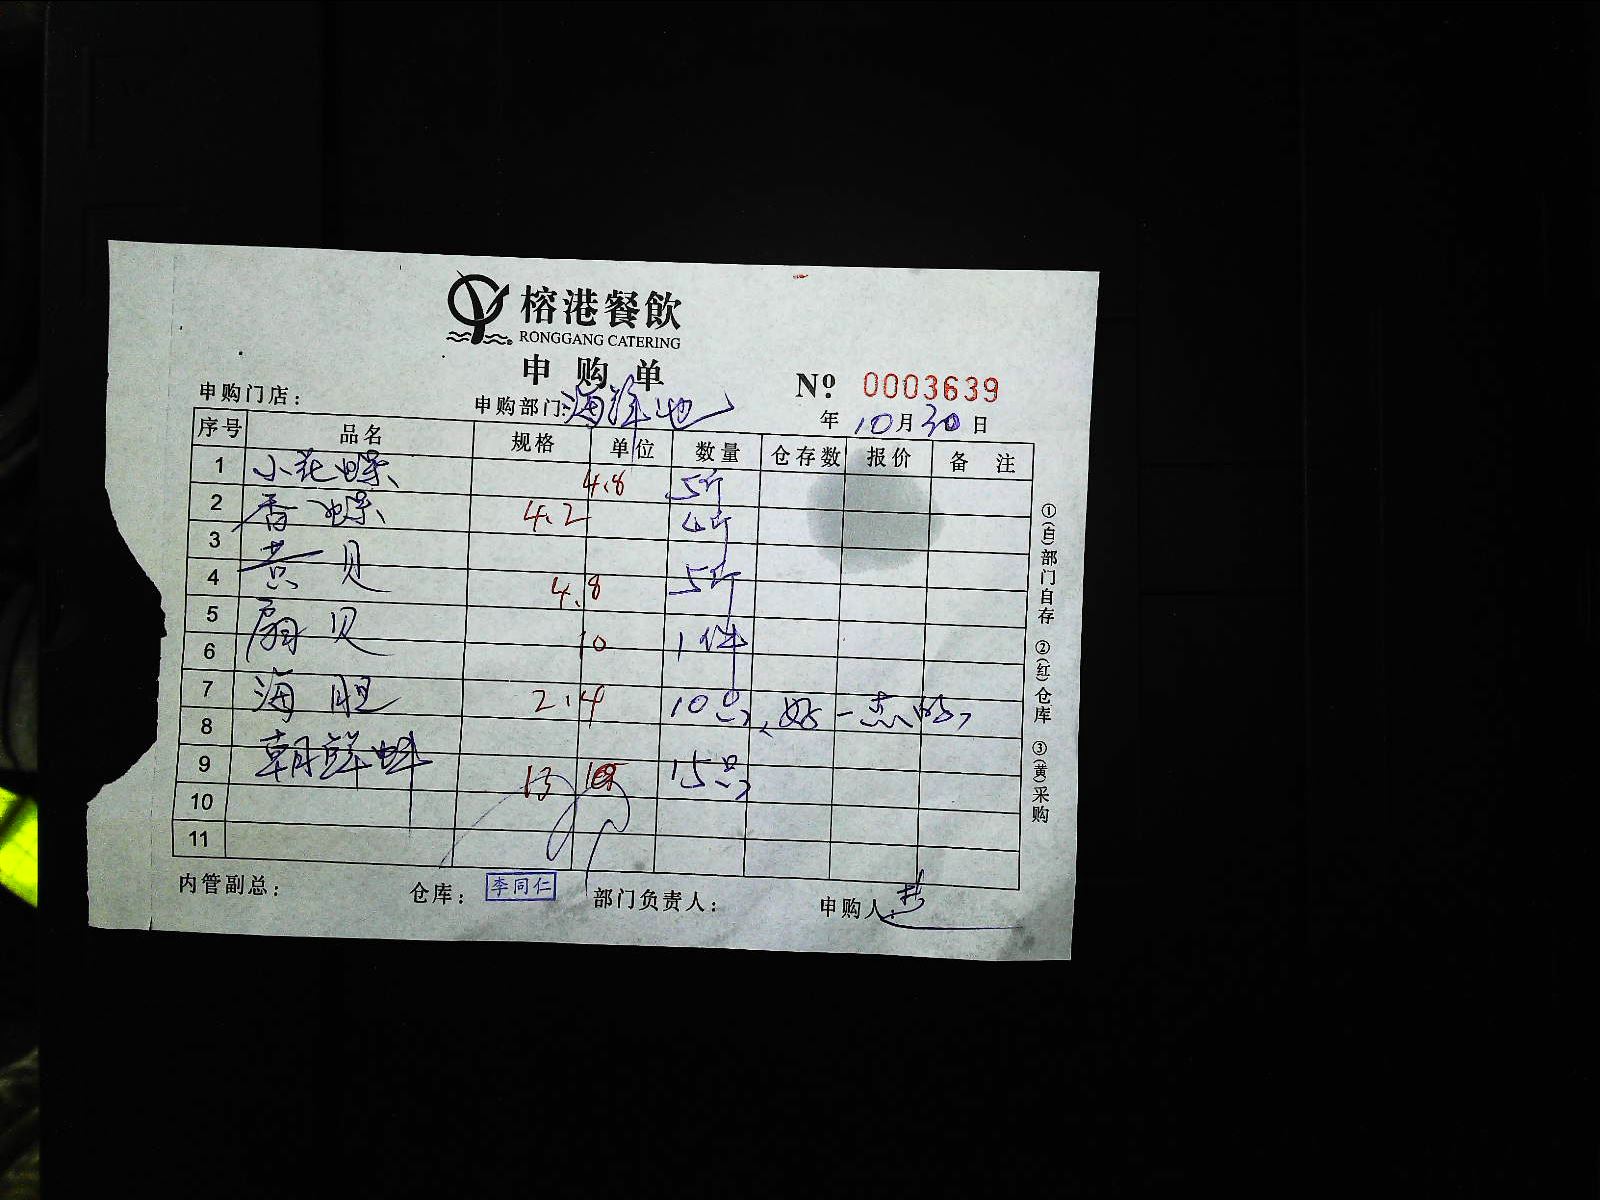 榕港餐飲
RONGGANG CATERING
申购单
№: 0003639
申购门店: 申购部门: 海鲜池 年 10 月 30 日
序号 品名 规格 单位 数量 仓存数 报价 备注
1 小花螺 4.8 5斤
2 香螺 4.2 4斤
3 黄贝
4 4.8 5斤
5 扇贝
6 10 1件
7 海胆 2.4 10只、好一点的
8 朝鲜蚌
9 13 15只
10
11
内管副总: 仓库: 李同仁 部门负责人: 申购人:
①(白)部门自存 ②(红)仓库 ③(黄)采购